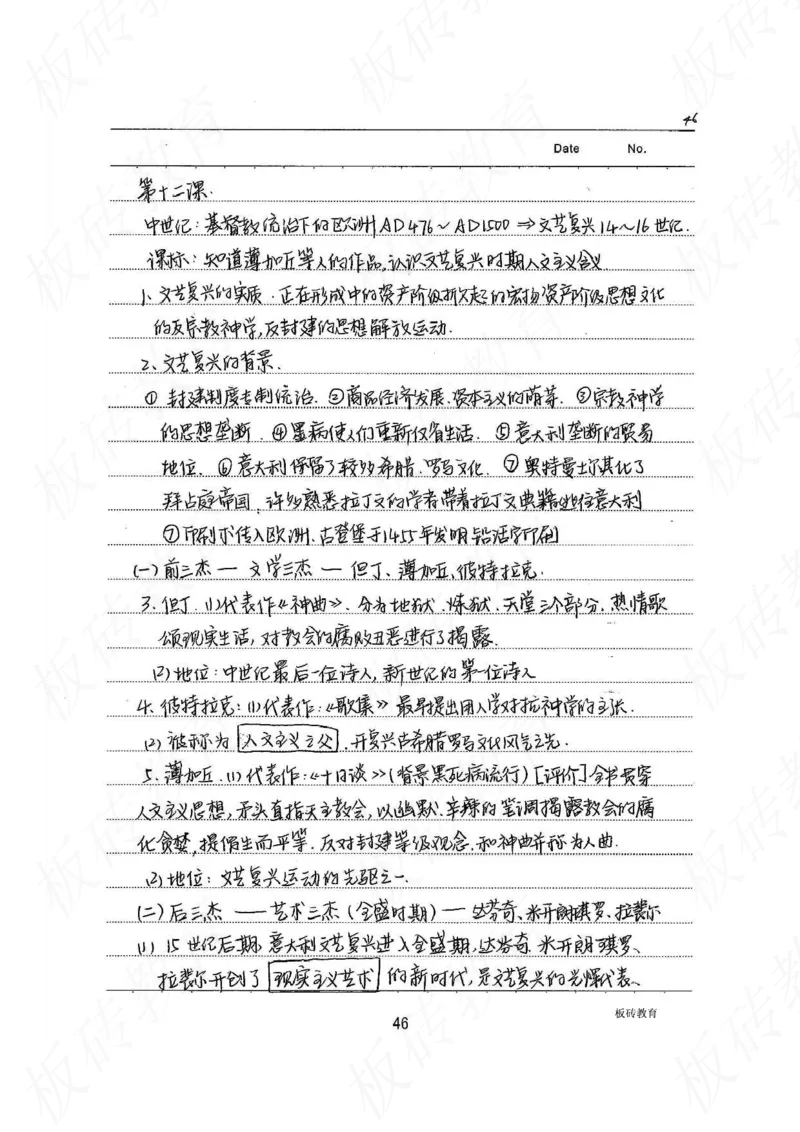 46
Date No.
第十二课.
中世纪:基督教统治下的欧洲AD476~AD1500⇒文艺复兴14~16世纪.
课标:知道薄加丘等人的作品,认识文艺复兴时期人文主义含义
1、文艺复兴的实质.正在形成中的资产阶级掀起的宏扬资产阶级思想文化
的反宗教神学,反封建的思想解放运动.
2、文艺复兴的背景.
①封建制度专制统治.②商品经济发展.资本主义的萌芽.③宗教神学
的思想垄断.④黑病使人们重新仅省生活.⑤意大利垄断的贸易
地位.⑥意大利保留了较多希腊.罗马文化.⑦奥特曼土尔其化了
拜占庭帝国,许多熟悉拉丁文的学者带着拉丁文典籍逃往意大利
⑦印刷术传入欧洲.古登堡于1455年发明铅活字印刷
(一)前三杰—文学三杰—但丁、薄加丘,彼特拉克.
3.但丁.(1)代表作《神曲》.分为地狱.炼狱.天堂三个部分.热情歌
颂现实生活,对教会的腐败丑恶进行了揭露.
(2)地位:中世纪最后一位诗人,新世纪的第一位诗人
4.彼特拉克:(1)代表作:《歌集》最早提出用人学对抗神学的主张.
(2)被称为人文主义之父.开复兴古希腊罗马文化风气之先.
5.薄加丘.(1)代表作:《十日谈》(背景黑死病流行)[评价]全书贯穿
人文主义思想,矛头直指天主教会,以幽默.辛辣的笔调揭露教会的腐
化贪婪,提倡生而平等.反对封建等级观念.和神曲并称为人曲.
(2)地位:文艺复兴运动的先驱之一.
(二)后三杰——艺术三杰(全盛时期)—达芬奇、米开朗琪罗、拉斐尔
(1)15世纪后期,意大利文艺复兴进入全盛期,达芬奇.米开朗琪罗、
拉斐尔开创了现实主义艺术的新时代,是文艺复兴的光辉代表.
板砖教育
46